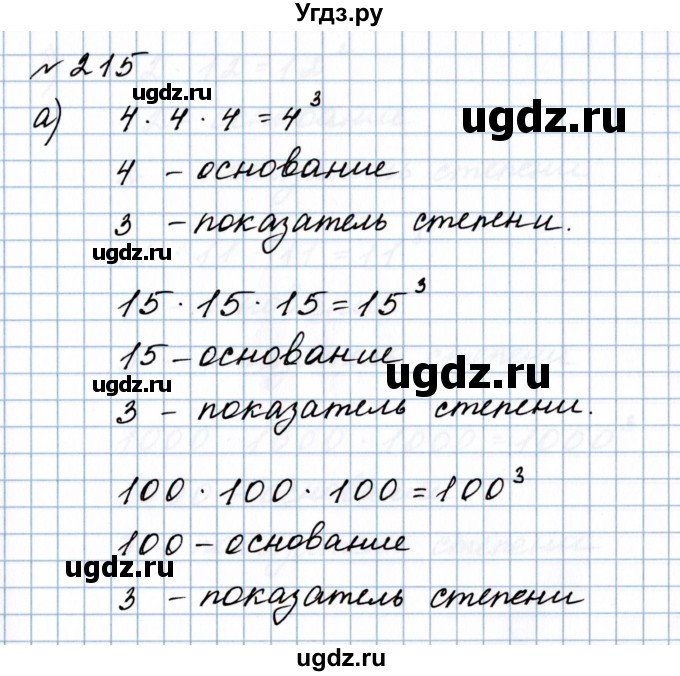 Угдз.ру
№ 215
ugdz.ru
ugdz.ru
а) 4 · 4 · 4 = 4³
4 – основание
3 – показатель степени.
ugdz.ru
15 · 15 · 15 = 15³
15 – основание
ugdz.ru
ugdz.ru
3 – показатель степени.
100 · 100 · 100 = 100³
100 – основание
ugdz.ru
3 – показатель степени
ugdz.ru